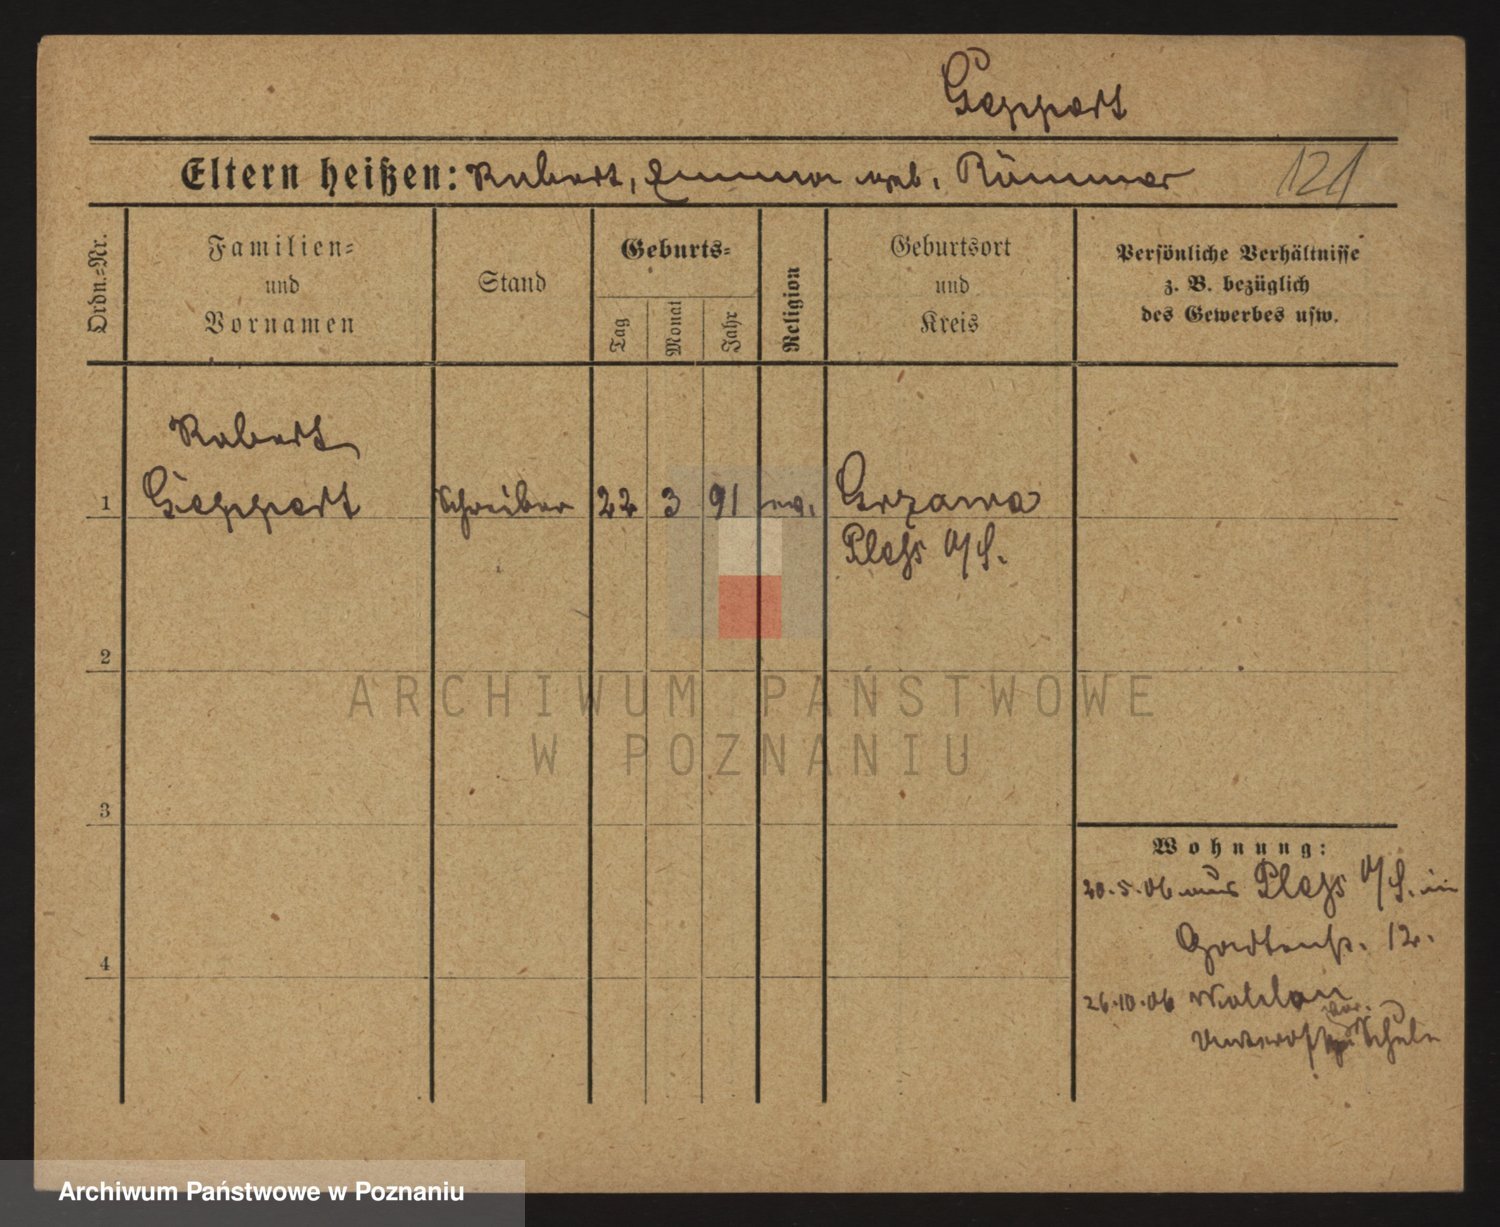 Geppert
Eltern heißen: Robert, Emma geb. Römmer
121
Ordn.=Nr.
Familien=
und
Vornamen
Stand
Geburts=
Tag
Monat
Jahr
Religion
Geburtsort
und
Kreis
Persönliche Verhältnisse
z. B. bezüglich
des Gewerbes usw.
Robert
1 Geppert Schreiber 22 3 91 ev. Grzawa
Pleß O/S.
2
3
4
Wohnung:
20.5.06 aus Pleß O/S. in
Gartenstr. 12.
26.10.06 Wohlau
Unteroff. Vor. Schule
ARCHIWUM PAŃSTWOWE
W POZNANIU
Archiwum Państwowe w Poznaniu